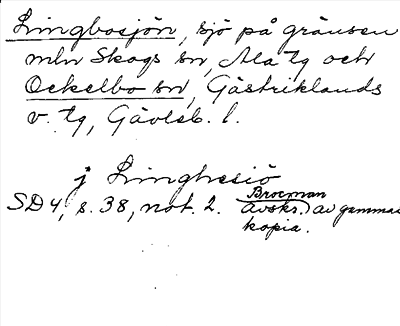 Lingbosjön, sjö på gränsen
mln Skogs sn, Ala tg och
Ockelbo sn, Gästriklands
v. tg, Gävleb. l.
j Linghesiö
SD 4, s. 38, not. 2. (Brocman
avskr.) av gammal
kopia.